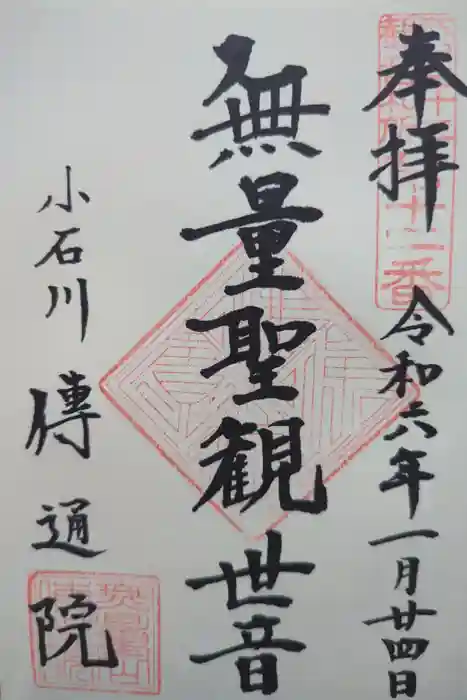 奉拝
令和六年一月廿四日
無量聖観世音
小石川 傳通院